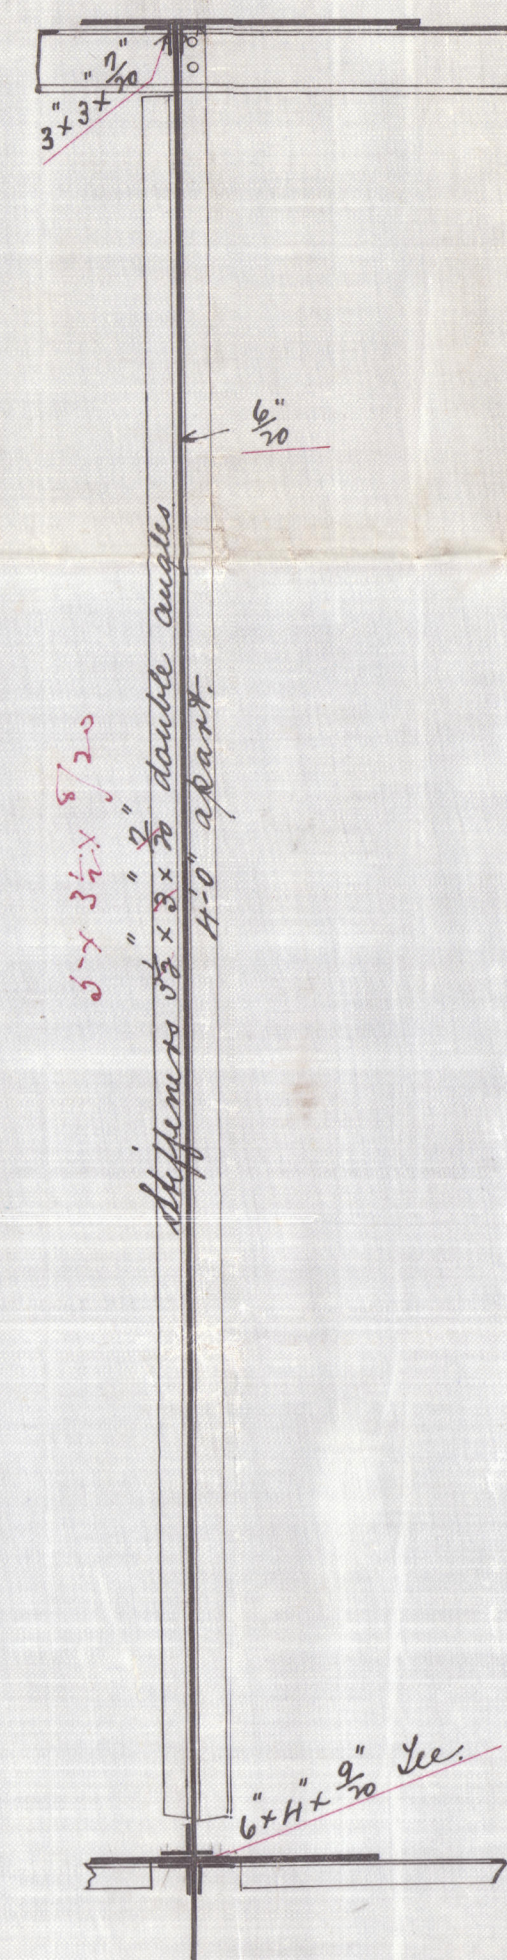 3" × 3" × 7/20"
6/20"
5 × 3 1/2 × 8/20
Stiffeners 3 1/2" × 3" × 7/20" double angles
4'-0" apart.
6" × 4" × 9/20" Tee.